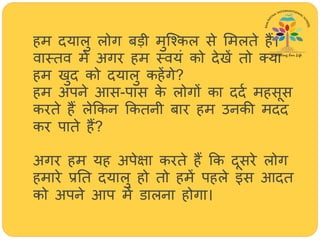 हम दयालु लोग बड़ी मुश्किल से मिलते हैं।
वास्तव में अगर हम स्वयं को देखें तो क्या
हम खुद को दयालु कहेंगे?
हम अपने आस-पास के लोगों का दर्द महसूस
करते हैं लेकिन कितनी बार हम उनकी मदद
कर पाते हैं?
अगर हम यह अपेक्षा करते हैं कि दूसरे लोग
हमारे प्रति दयालु हो तो हमें पहले इस आदत
को अपने आप में डालना होगा।